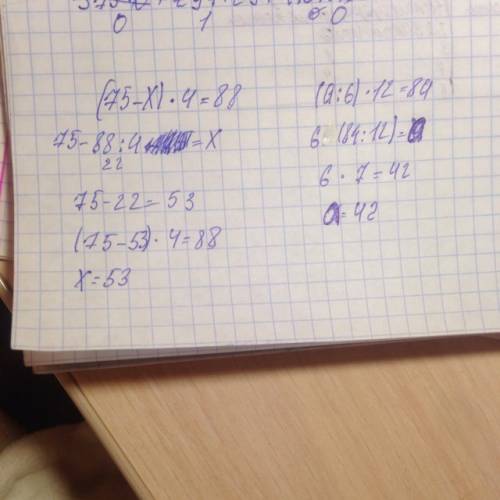 0 1 0
(75-x) · 4 = 88
75-88:4 = x
22
75-22 = 53
(75-53) · 4 = 88
x = 53
(a:6) · 12 = 84
6 · (84:12) = a
6 · 7 = 42
a = 42